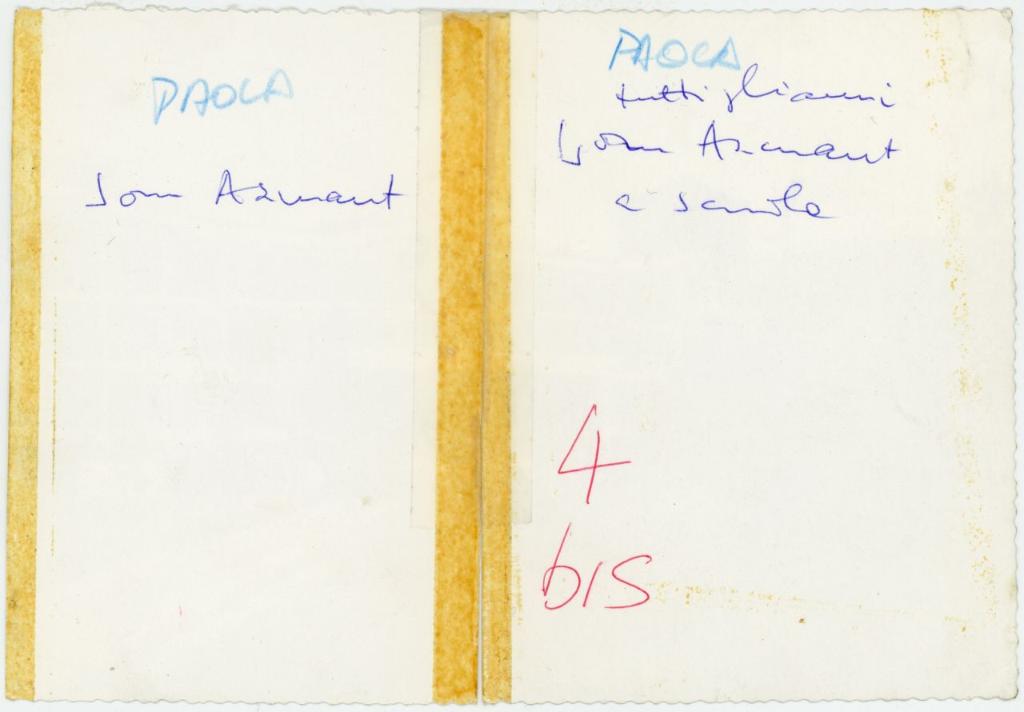 PAOLA
Jom Azmaut
PAOLA
tutti gli anni
Jom Azmaut
a scuola
4
bis